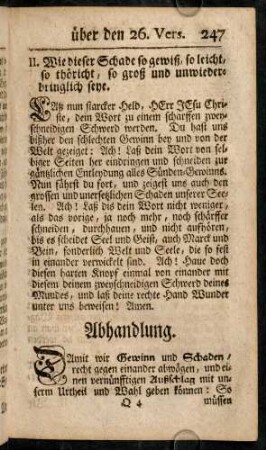 über den 26. Vers. 247
II. Wie dieser Schade so gewiß, so leicht,
so thöricht, so groß und unwieder-
bringlich seye.
Laß nun starcker Held, HErr JEsu Chri-
ste, dein Wort zu einem scharffen zwey-
schneidigen Schwerd werden. Du hast uns
bißher den schlechten Gewinn bey und von der
Welt gezeiget: Ach! laß dein Wort von sel-
biger Seiten her eindringen und schneiden zur
gäntzlichen Entleydung alles Sünden-Gewinns.
Nun fährst du fort, und zeigest uns auch den
grossen und unersetzlichen Schaden unserer See-
len. Ach! Laß dis dein Wort nicht weniger,
als das vorige, ja noch mehr, noch schärffer
schneiden, durchhauen, und nicht aufhören,
bis es scheidet Seel und Geist, auch Marck und
Bein, sonderlich Welt und Seele, die so fest
in einander verwickelt sind. Ach! Haue doch
diesen harten Knopf einmal von einander mit
diesem deinem zweyschneidigen Schwerd deines
Mundes, und laß deine rechte Hand Wunder
unter uns beweisen! Amen.
Abhandlung.
DAmit wir Gewinn und Schaden/
recht gegen einander abwögen, und ei-
nen vernünfftigen Außschlag mit un-
serm Urtheil und Wahl geben können: So
Q 4 müssen